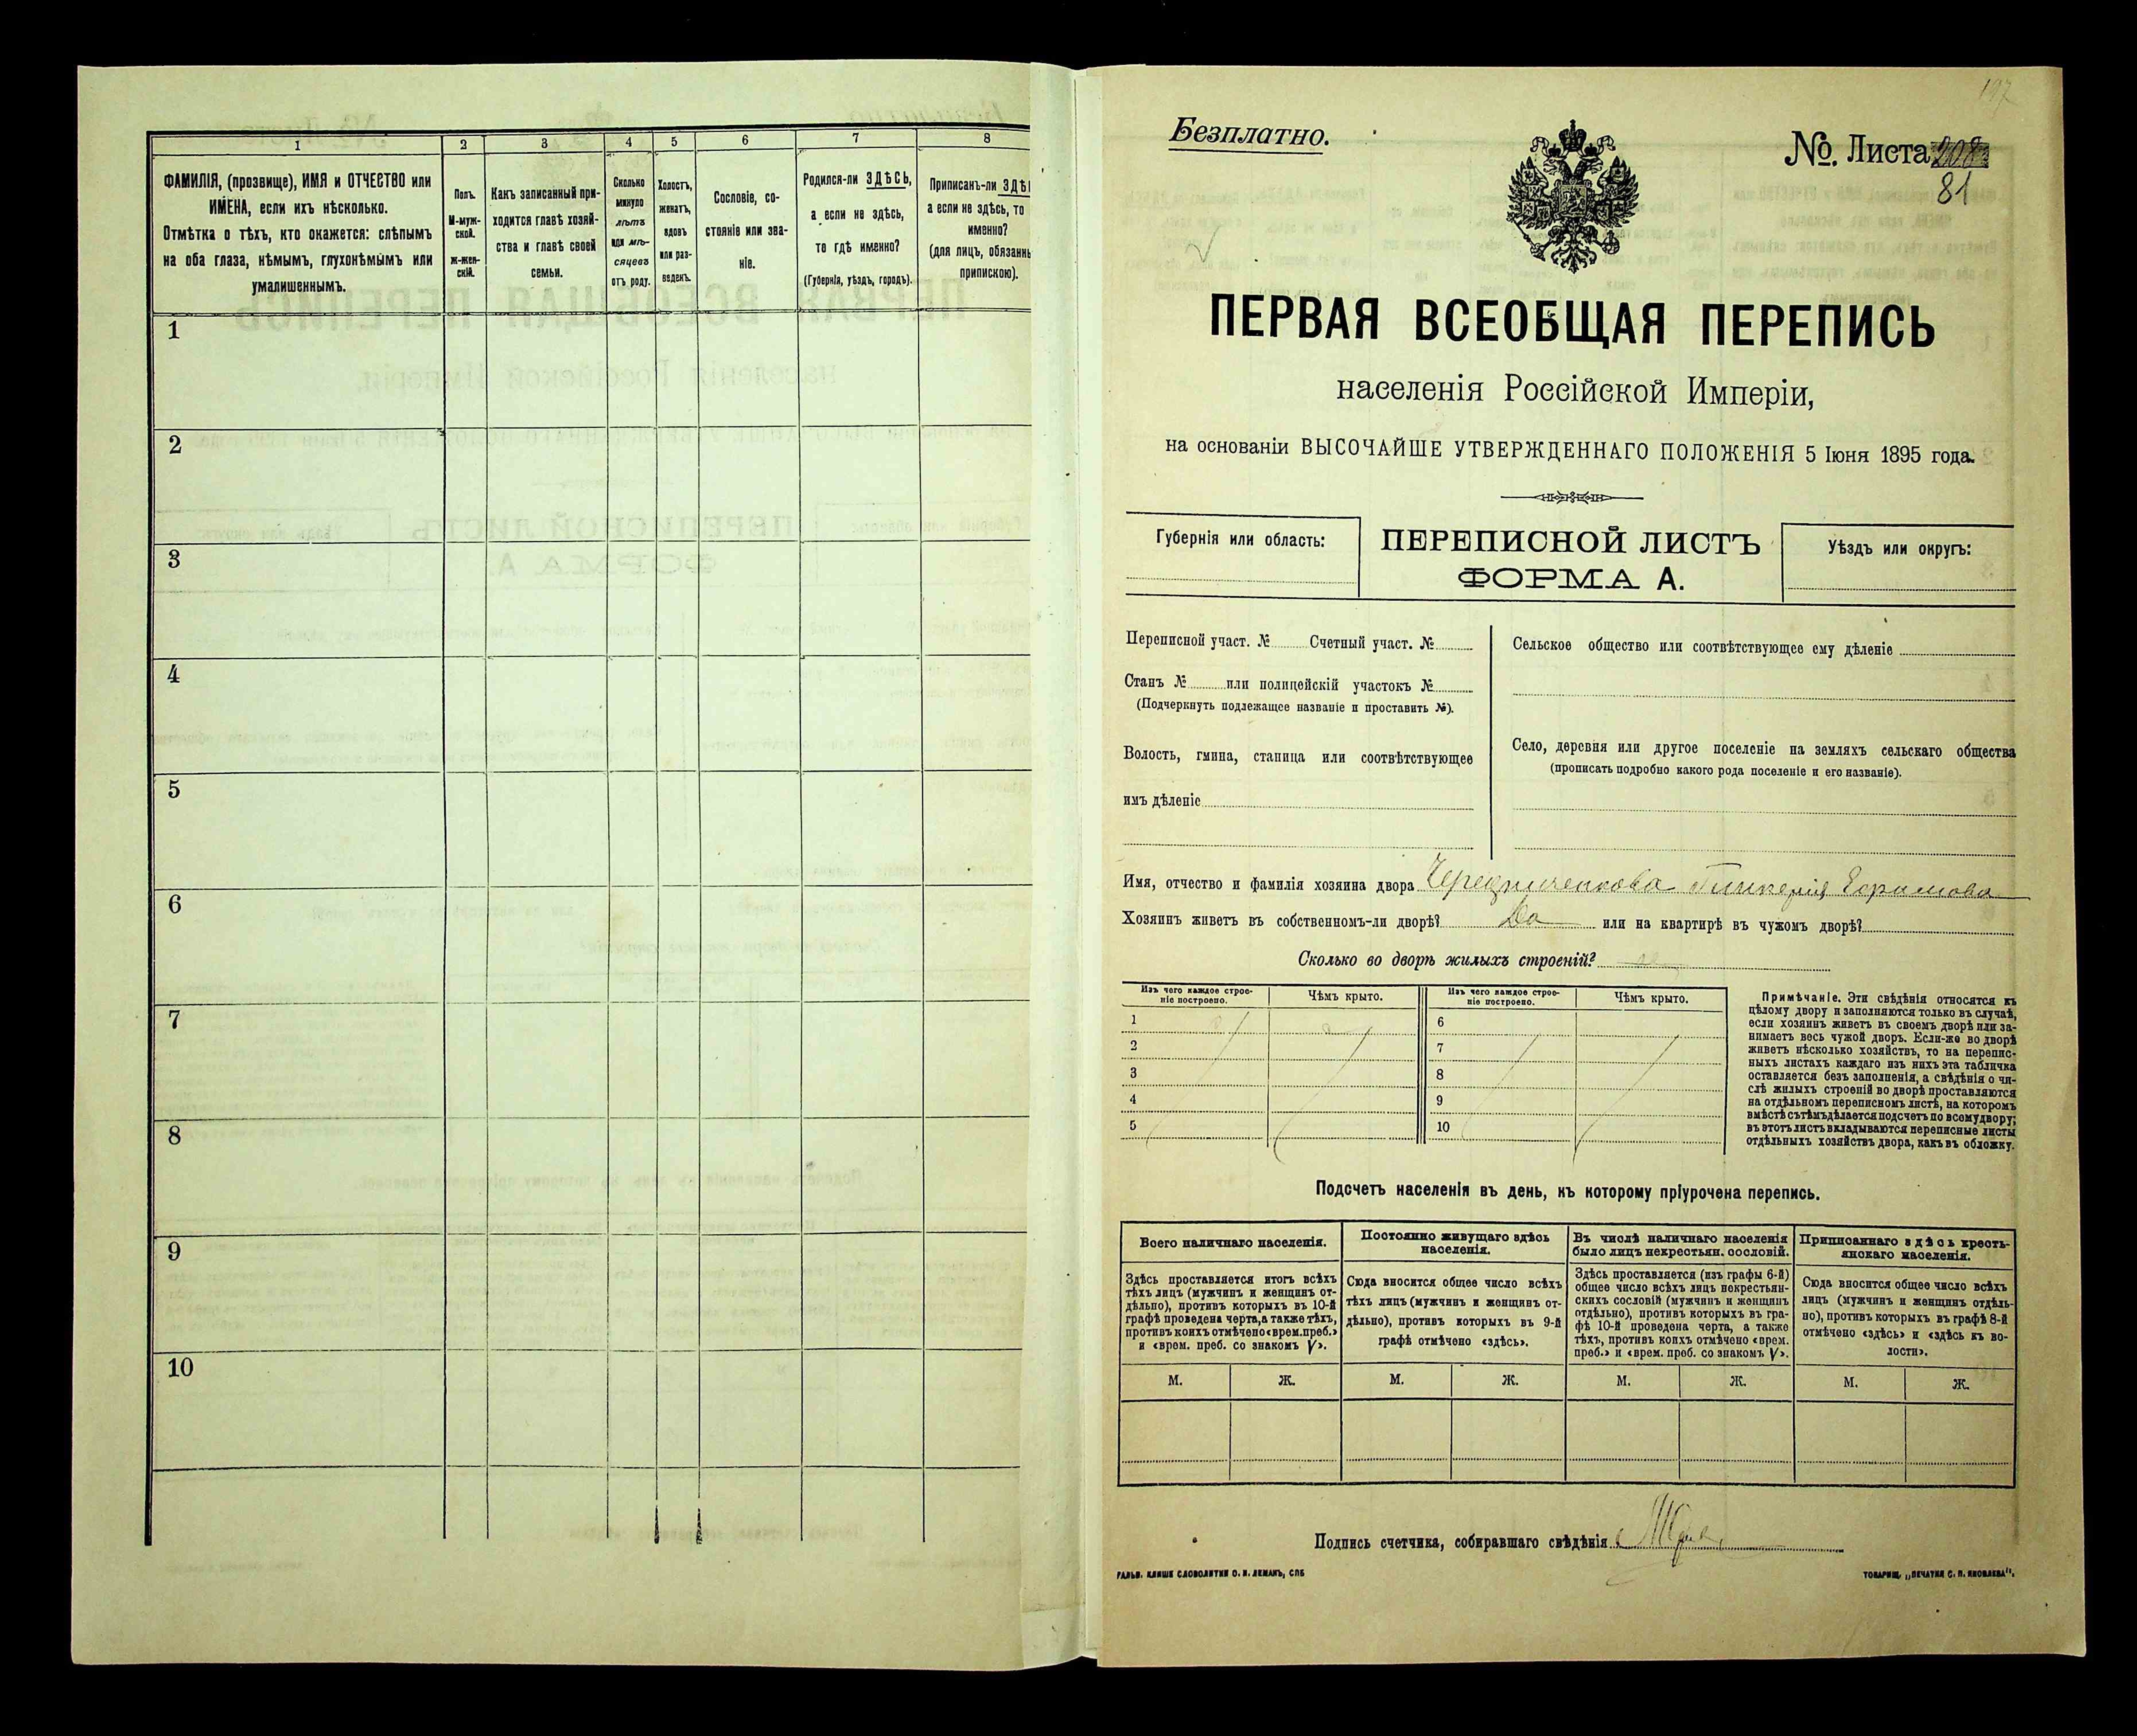 1 2 3 4 5 6 7 8
ФАМИЛІЯ, (прозвище), ИМЯ и ОТЧЕСТВО или
ИМЕНА, если ихъ нѣсколько.
Отмѣтка о тѣхъ, кто окажется: слѣпымъ
на оба глаза, нѣмымъ, глухонѣмымъ или
умалишеннымъ.
Полъ.
М-муж-
ской.
ж-жен-
скій.
Какъ записанный при-
ходится главѣ хозяй-
ства и главѣ своей
семьи.
Сколько
минуло
лѣтъ
или мѣ-
сяцевъ
отъ роду.
Холостъ,
женатъ,
вдовъ
или раз-
веденъ.
Сословіе, со-
стояніе или зва-
ніе.
Родился-ли ЗДѢСЬ,
а если не здѣсь,
то гдѣ именно?
(Губернія, уѣздъ, городъ).
Приписанъ-ли ЗДѢ
а если не здѣсь, то
именно?
(для лицъ, обязанн
припискою).
1
2
3
4
5
6
7
8
9
10
197
Безплатно.
№. Листа 208
81
ПЕРВАЯ ВСЕОБЩАЯ ПЕРЕПИСЬ
населенія Россійской Имперіи,
на основаніи ВЫСОЧАЙШЕ УТВЕРЖДЕННАГО ПОЛОЖЕНІЯ 5 Іюня 1895 года.
Губернія или область:
ПЕРЕПИСНОЙ ЛИСТЪ
ФОРМА А.
Уѣздъ или округъ:
Переписной участ. № Счетный участ. №
Станъ № или полицейскій участокъ №
(Подчеркнуть подлежащее названіе и проставить №).
Волость, гмина, станица или соотвѣтствующее
имъ дѣленіе
Сельское общество или соотвѣтствующее ему дѣленіе
Село, деревня или другое поселеніе на земляхъ сельскаго общества
(прописать подробно какого рода поселеніе и его названіе).
Имя, отчество и фамилія хозяина двора
Хозяинъ живетъ въ собственномъ-ли дворѣ? Да или на квартирѣ въ чужомъ дворѣ?
Сколько во дворѣ жилыхъ строеній?
Изъ чего каждое строе-
ніе построено.
Чѣмъ крыто.
Изъ чего каждое строе-
ніе построено.
Чѣмъ крыто.
1 6
2 7
3 8
4 9
5 10
Примѣчаніе. Эти свѣдѣнія относятся къ
цѣлому двору и заполняются только въ случаѣ,
если хозяинъ живетъ въ своемъ дворѣ или за-
нимаетъ весь чужой дворъ. Если-же во дворѣ
живетъ нѣсколько хозяйствъ, то на перепис-
ныхъ листахъ каждаго изъ нихъ эта табличка
оставляется безъ заполненія, а свѣдѣнія о чи-
слѣ жилыхъ строеній во дворѣ проставляются
на отдѣльномъ переписномъ листѣ, на которомъ
вмѣстѣ съ тѣмъ дѣлается подсчетъ по всему двору;
въ этотъ листъ вкладываются переписные листы
отдѣльныхъ хозяйствъ двора, какъ въ обложку.
Подсчетъ населенія въ день, къ которому пріурочена перепись.
Всего наличнаго населенія.
Здѣсь проставляется итогъ всѣхъ
тѣхъ лицъ (мужчинъ и женщинъ от-
дѣльно), противъ которыхъ въ 10-й
графѣ проведена черта, а также тѣхъ,
противъ коихъ отмѣчено «врем. преб.»
и «врем. преб. со знакомъ V».
Постоянно живущаго здѣсь
населенія.
Сюда вносится общее число всѣхъ
тѣхъ лицъ (мужчинъ и женщинъ от-
дѣльно), противъ которыхъ въ 9-й
графѣ отмѣчено «здѣсь».
Въ числѣ наличнаго населенія
было лицъ некрестьян. сословій.
Здѣсь проставляется (изъ графы 6-й)
общее число всѣхъ лицъ некрестьян-
скихъ сословій (мужчинъ и женщинъ
отдѣльно), противъ которыхъ въ гра-
фѣ 10-й проведена черта, а также
тѣхъ, противъ коихъ отмѣчено «врем.
преб.» и «врем. преб. со знакомъ V».
Приписаннаго здѣсь кресть-
янскаго населенія.
Сюда вносится общее число всѣхъ
лицъ (мужчинъ и женщинъ отдѣль-
но), противъ которыхъ въ графѣ 8-й
отмѣчено «здѣсь» и «здѣсь къ во-
лости».
М. Ж. М. Ж. М. Ж. М. Ж.
Подпись счетчика, собиравшаго свѣдѣнія
ГАЛЬВ. КЛИШЕ СЛОВОЛИТНИ О. И. ЛЕМАНЪ, СПБ
ТОВАРИЩ. „ПЕЧАТНЯ С. П. ЯКОВЛЕВА".